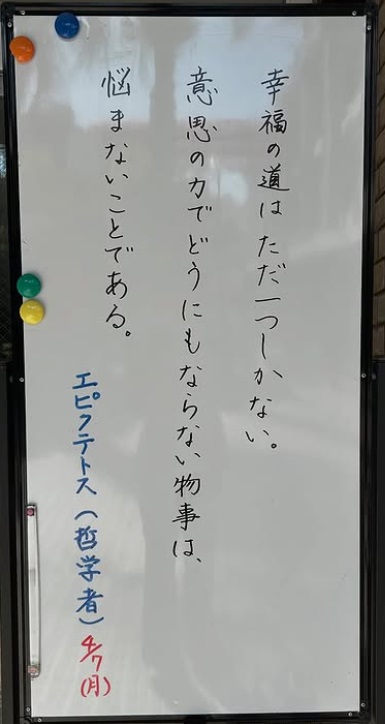 幸福の道はただ一つしかない。
意思の力でどうにもならない物事は、
悩まないことである。
エピクテトス(哲学者)4/7(月)